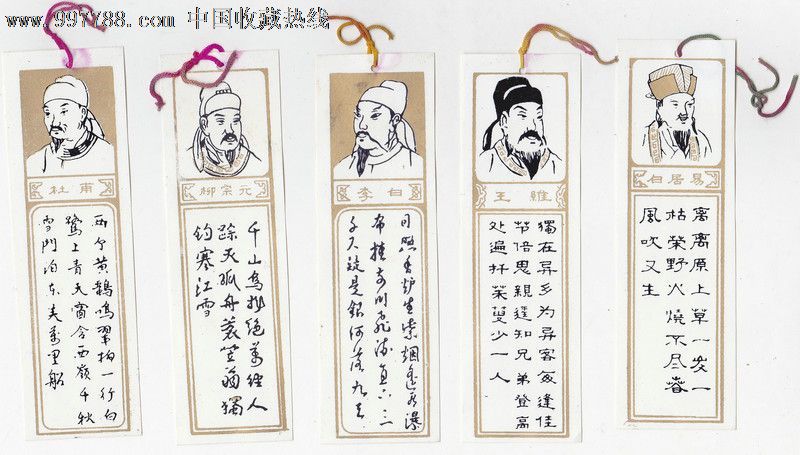 www.997788.com 中国收藏热线
杜甫
两个黄鸝鳴翠柳一行白
鷺上青天窗含西嶺千秋
雪門泊东吴萬里船
柳宗元
千山鸟飛绝萬徑人
踪灭孤舟蓑笠翁獨
钓寒江雪
李白
日照香炉生紫烟遥看瀑
布挂前川飞流直下三
千尺疑是銀河落九天
王維
獨在异乡为异客每逢佳
节倍思親遥知兄弟登高
处遍插茱萸少一人
白居易
离離原上草一岁一
枯榮野火燒不尽春
風吹又生